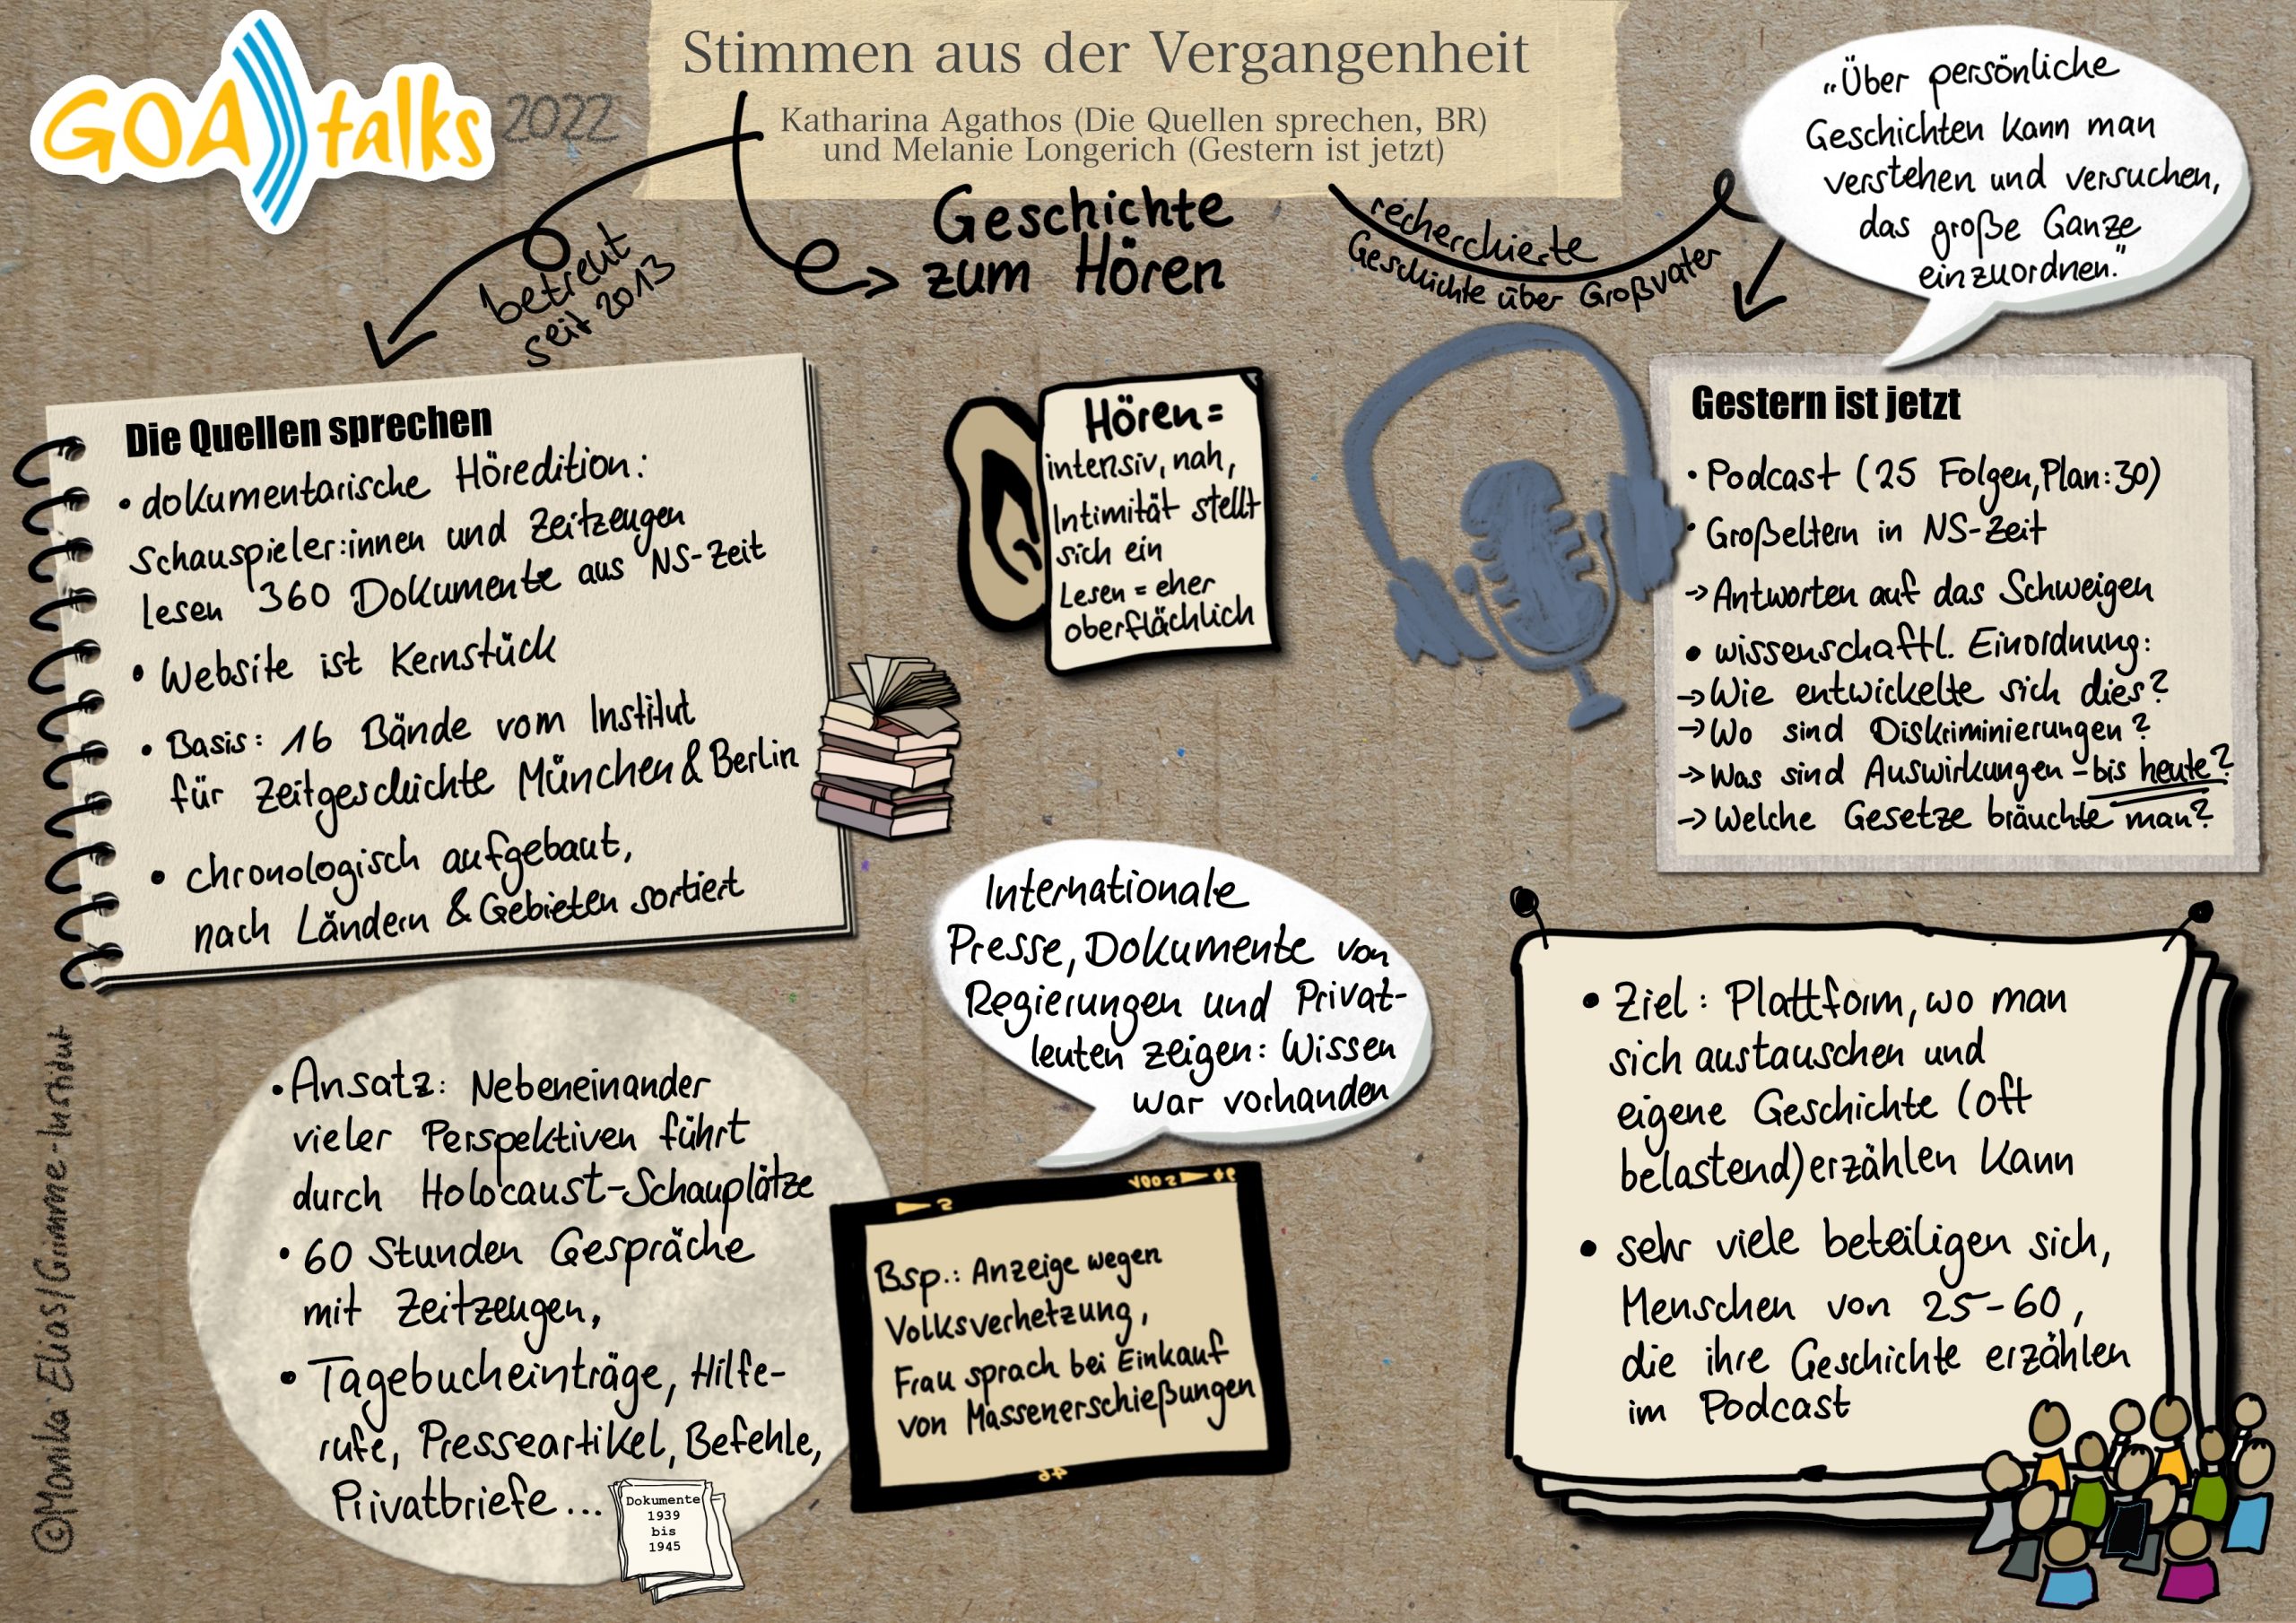 GOA talks 2022
Stimmen aus der Vergangenheit
Katharina Agathos (Die Quellen sprechen, BR)
und Melanie Longerich (Gestern ist jetzt)
betreut
seit 2013
Geschichte
zum Hören
recherchierte
Geschichte über Großvater
„Über persönliche
Geschichten kann man
verstehen und versuchen,
das große Ganze
einzuordnen."
Die Quellen sprechen
• dokumentarische Höredition:
Schauspieler:innen und Zeitzeugen
lesen 360 Dokumente aus NS-Zeit
• Website ist Kernstück
• Basis: 16 Bände vom Institut
für Zeitgeschichte München & Berlin
• chronologisch aufgebaut,
nach Ländern & Gebieten sortiert
Hören =
intensiv, nah,
Intimität stellt
sich ein
Lesen = eher
oberflächlich
Gestern ist jetzt
• Podcast (25 Folgen, Plan: 30)
• Großeltern in NS-Zeit
→ Antworten auf das Schweigen
• wissenschaftl. Einordnung:
→ Wie entwickelte sich dies?
→ Wo sind Diskriminierungen?
→ Was sind Auswirkungen - bis heute?
→ Welche Gesetze bräuchte man?
• Ansatz: Nebeneinander
vieler Perspektiven führt
durch Holocaust-Schauplätze
• 60 Stunden Gespräche
mit Zeitzeugen,
• Tagebucheinträge, Hilfe-
rufe, Presseartikel, Befehle,
Privatbriefe...
Dokumente
1939
bis
1945
Internationale
Presse, Dokumente von
Regierungen und Privat-
leuten zeigen: Wissen
war vorhanden
Bsp.: Anzeige wegen
Volksverhetzung,
Frau sprach bei Einkauf
von Massenerschießungen
• Ziel: Plattform, wo man
sich austauschen und
eigene Geschichte (oft
belastend) erzählen kann
• sehr viele beteiligen sich,
Menschen von 25-60,
die ihre Geschichte erzählen
im Podcast
©Monika Elias/Grimme-Institut